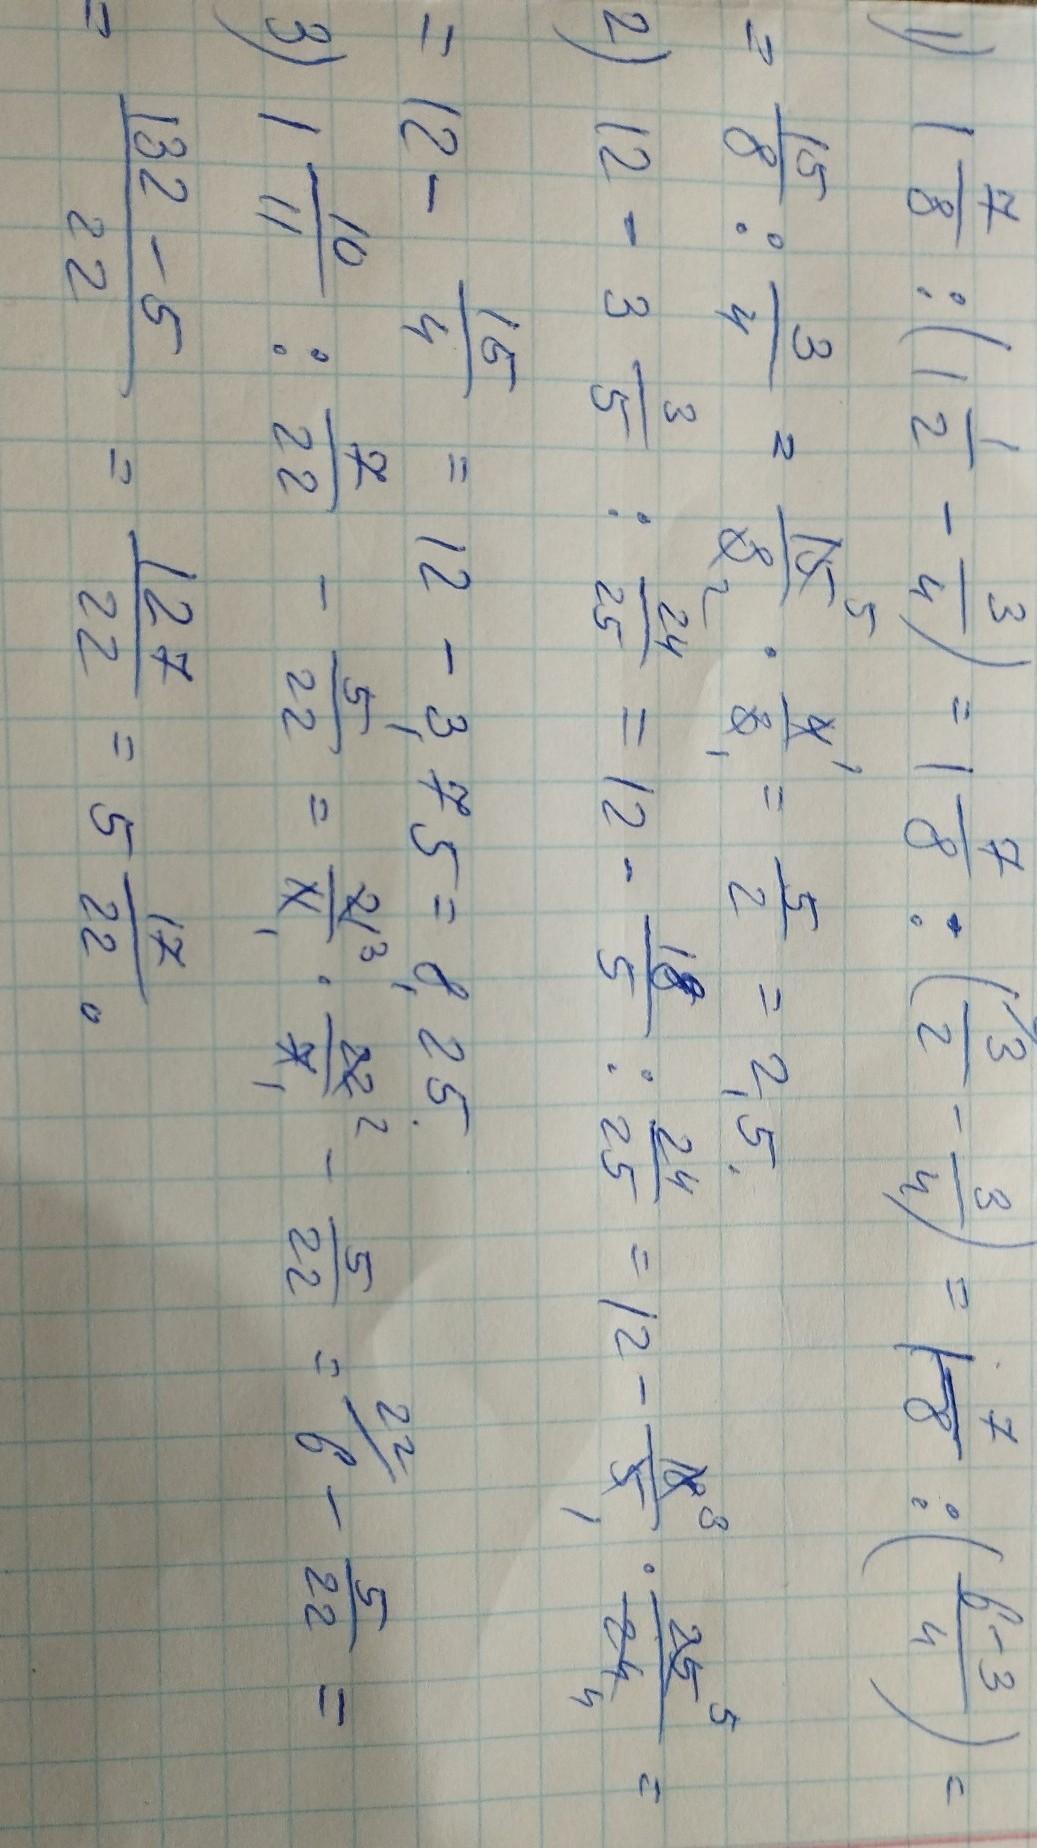 1) 1 7/8 : (1 1/2 - 3/4) = 1 7/8 : (3/2 - 3/4) = 1 7/8 : (6-3/4) =
= 15/8 : 3/4 = 15/8 · 4/3 = 5/2 = 2,5.
2) 12 - 3 3/5 : 24/25 = 12 - 18/5 : 24/25 = 12 - 18/5 · 25/24 =
= 12 - 15/4 = 12 - 3,75 = 8,25.
3) 1 10/11 : 7/22 - 5/22 = 21/11 · 22/7 - 5/22 = 6 - 5/22 =
= 132-5/22 = 127/22 = 5 17/22.